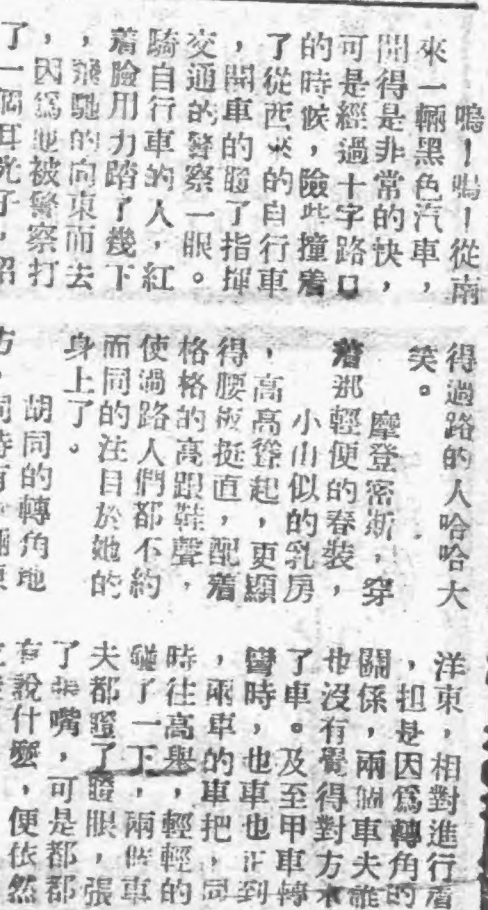 嗚！嗚！從南
來一輛黑色汽車，
開得是非常的快，
可是經過十字路口
的時候，險些撞着
了從西來的自行車
，開車的瞪了指揮
交通的警察一眼。
騎自行車的人，紅
着臉用力踏了幾下
，飛馳的向東而去
，因爲他被警察打
了一個耳光子，招
得過路的人哈哈大
笑。
摩登密斯，穿
着那輕便的春裝，
小山似的乳房
，高高聳起，更顯
得腰板挺直，配着
格格的高跟鞋聲，
使過路人們都不約
而同的注目於她的
身上了。
胡同的轉角地
方，同時有兩輛東
洋東，相對進行着
，担是因爲轉角的
關係，兩個車夫誰
也沒有覺得對方來
了車。及至甲車轉
彎時，乜車也正到
，兩車的車把，同
時往高舉，輕輕的
碰了一下，兩個車
夫都瞪了瞪眼，張
了張嘴，可是都都
有說什麼，便依然